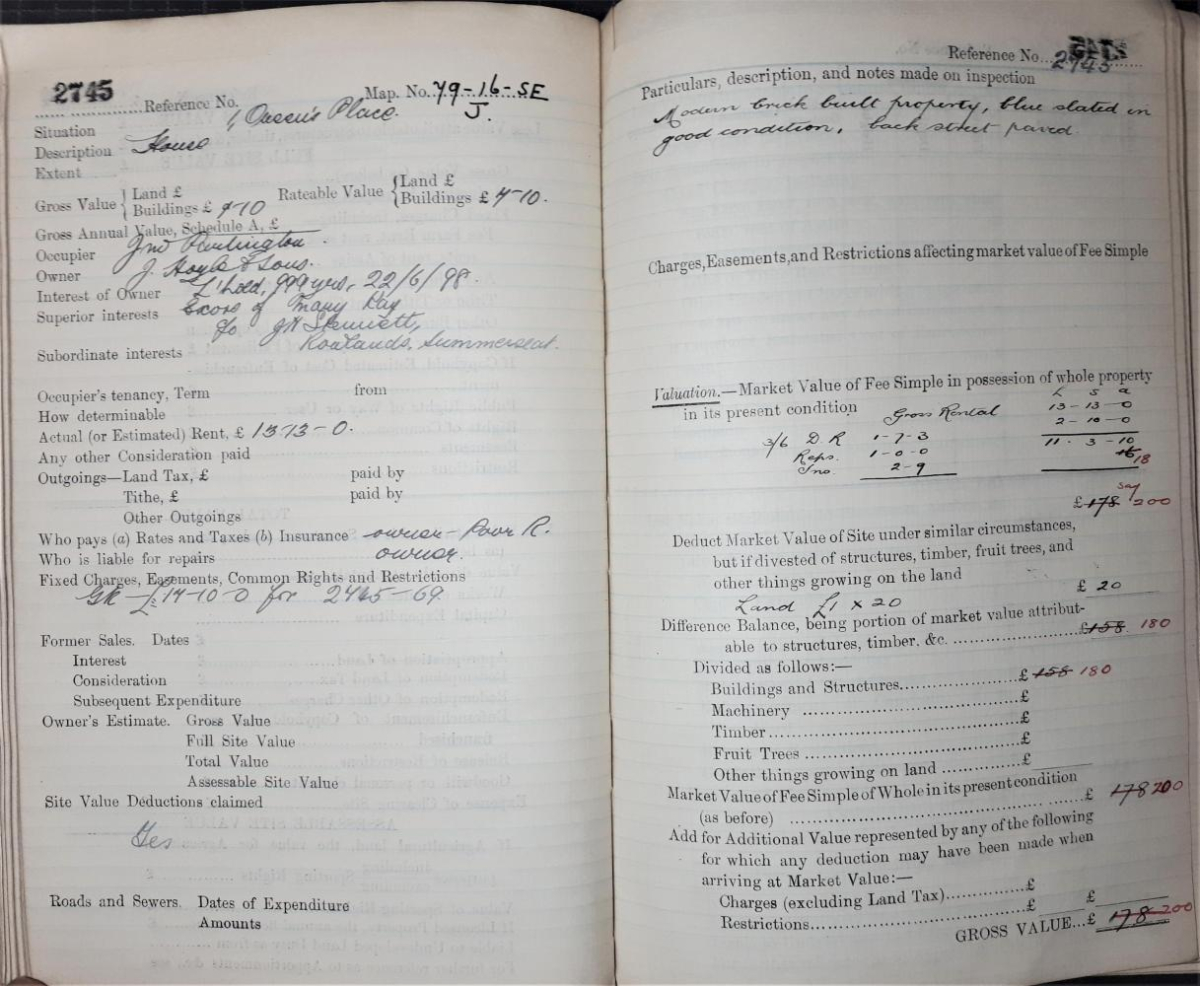 2745
Reference No. Map. No. 79-16-SE
J.
Situation 1, Queen's Place.
Description House
Extent
Gross Value { Land £ Rateable Value { Land £
Buildings £ 7-10 Buildings £ 4-10.
Gross Annual Value, Schedule A, £
Occupier Jno Partington
Owner J. Hoyle & Sons.
Interest of Owner L'hold, 999 yrs, 22/6/98.
Superior interests Exors of Mary Kay
c/o J H
Rowlands, Summerseat.
Subordinate interests
Occupier's tenancy, Term from
How determinable
Actual (or Estimated) Rent, £ 13-13-0.
Any other Consideration paid
Outgoings—Land Tax, £ paid by
Tithe, £ paid by
Other Outgoings
Who pays (a) Rates and Taxes (b) Insurance owner - Poor R.
Who is liable for repairs owner.
Fixed Charges, Easements, Common Rights and Restrictions
GR £14-10-0 for 2465-69
Former Sales. Dates
Interest
Consideration
Subsequent Expenditure
Owner's Estimate. Gross Value
Full Site Value
Total Value
Assessable Site Value
Site Value Deductions claimed
Yes
Roads and Sewers. Dates of Expenditure
Amounts
Reference No. 2745
Particulars, description, and notes made on inspection
Modern brick built property, blue slated in
good condition, back street paved.
Charges, Easements, and Restrictions affecting market value of Fee Simple
Valuation.—Market Value of Fee Simple in possession of whole property
in its present condition Gross Rental £ s d
13-13-0
3/6 D.R 1-7-3 2-10-0
Reps. 1-0-0 11. 3-10
Ins. 2-9 16 18
say
£ 178 200
Deduct Market Value of Site under similar circumstances,
but if divested of structures, timber, fruit trees, and
other things growing on the land £ 20
Land £1 x 20
Difference Balance, being portion of market value attribut-
able to structures, timber, &c. £158. 180
Divided as follows:—
Buildings and Structures £ 158 180
Machinery £
Timber £
Fruit Trees £
Other things growing on land £
Market Value of Fee Simple of Whole in its present condition
(as before) £ 178 200
Add for Additional Value represented by any of the following
for which any deduction may have been made when
arriving at Market Value:—
Charges (excluding Land Tax) £
Restrictions £ £
GROSS VALUE...£ 178 200